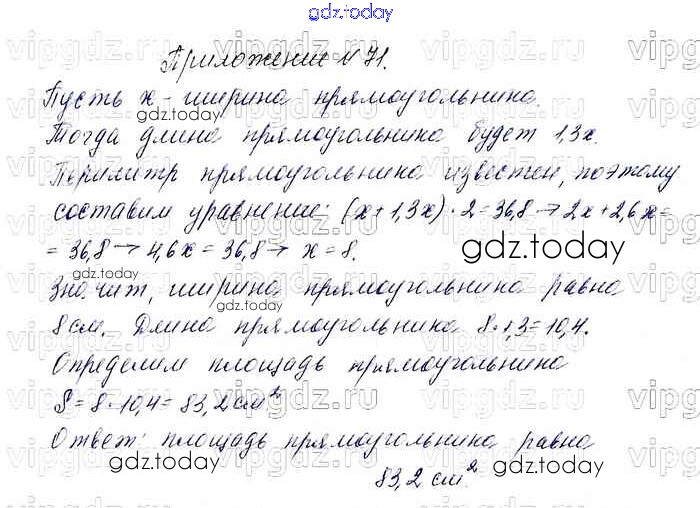 gdz.today
Приложение № 71.
Пусть x - ширина прямоугольника.
Тогда длина прямоугольника будет 1,3x.
Периметр прямоугольника известен, поэтому
составим уравнение: (x+1,3x)·2=36,8→2x+2,6x=
=36,8→4,6x=36,8→ x=8.
Значит, ширина прямоугольника равна
8 см. Длина прямоугольника 8·1,3=10,4.
Определим площадь прямоугольника
S=8·10,4=83,2 см²
Ответ: площадь прямоугольника равна
83,2 см².